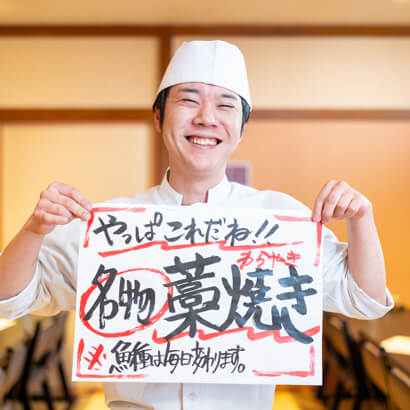 やっぱこれだね!!
わらやき
名物藁焼き
※魚種は毎日変わります。